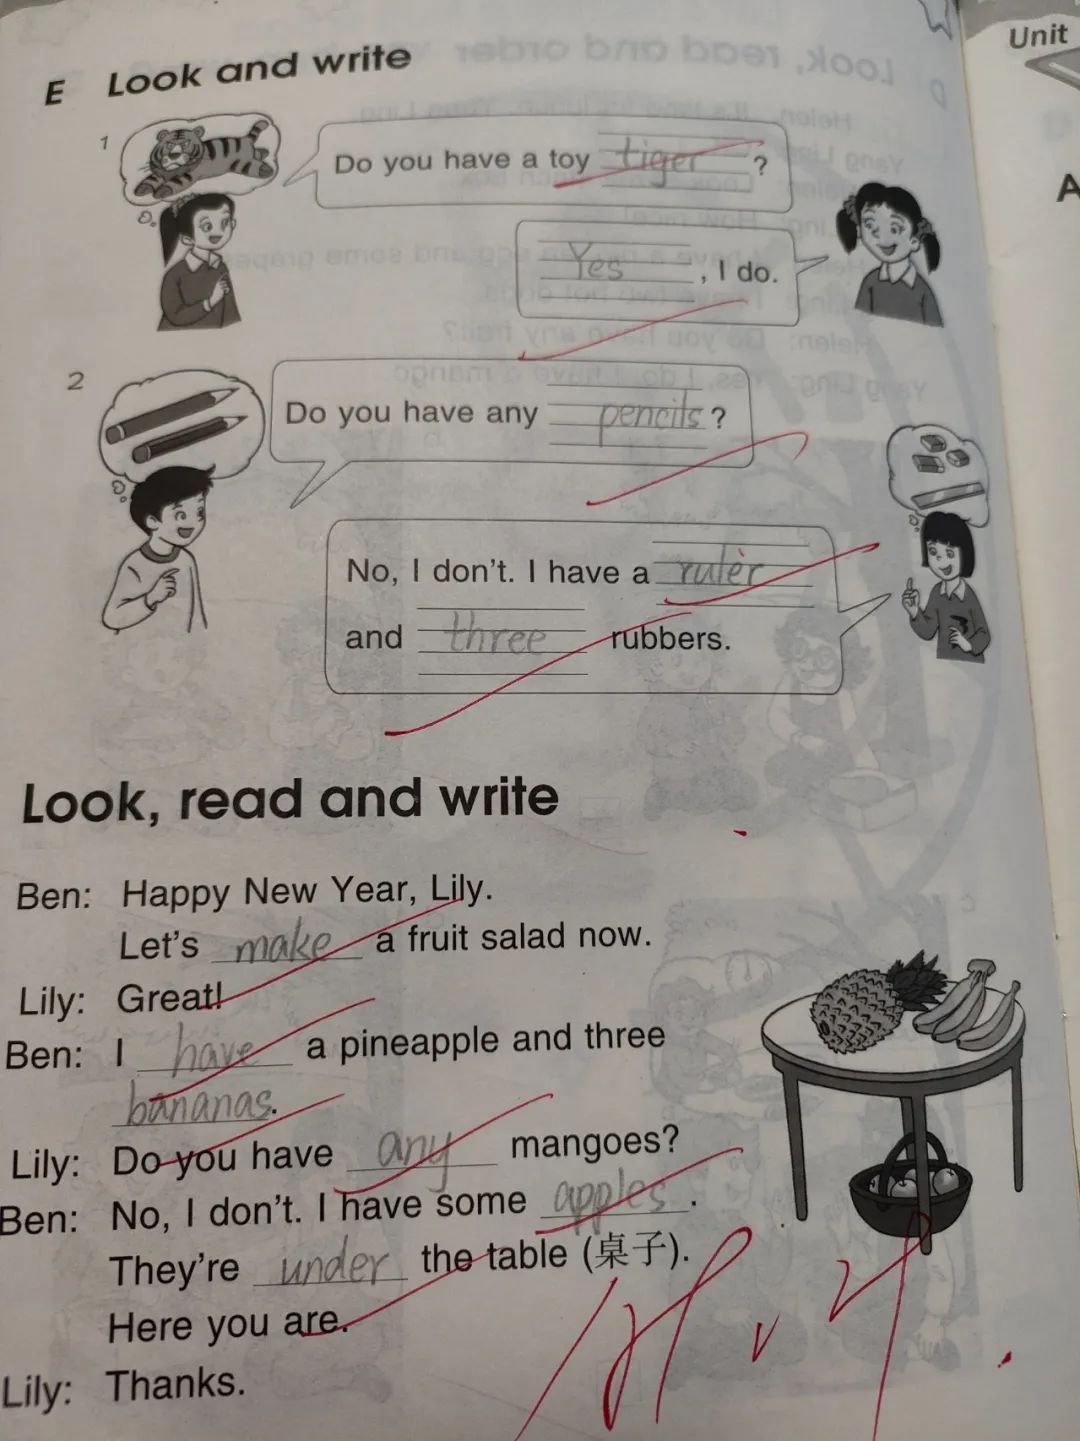 Unit
E Look and write
1
Do you have a toy tiger ?
Yes , I do.
2
Do you have any pencils ?
No, I don't. I have a ruler
and three rubbers.
Look, read and write
Ben: Happy New Year, Lily.
Let's make a fruit salad now.
Lily: Great!
Ben: I have a pineapple and three
bananas.
Lily: Do you have any mangoes?
Ben: No, I don't. I have some apples .
They're under the table (桌子).
Here you are.
Lily: Thanks.
A